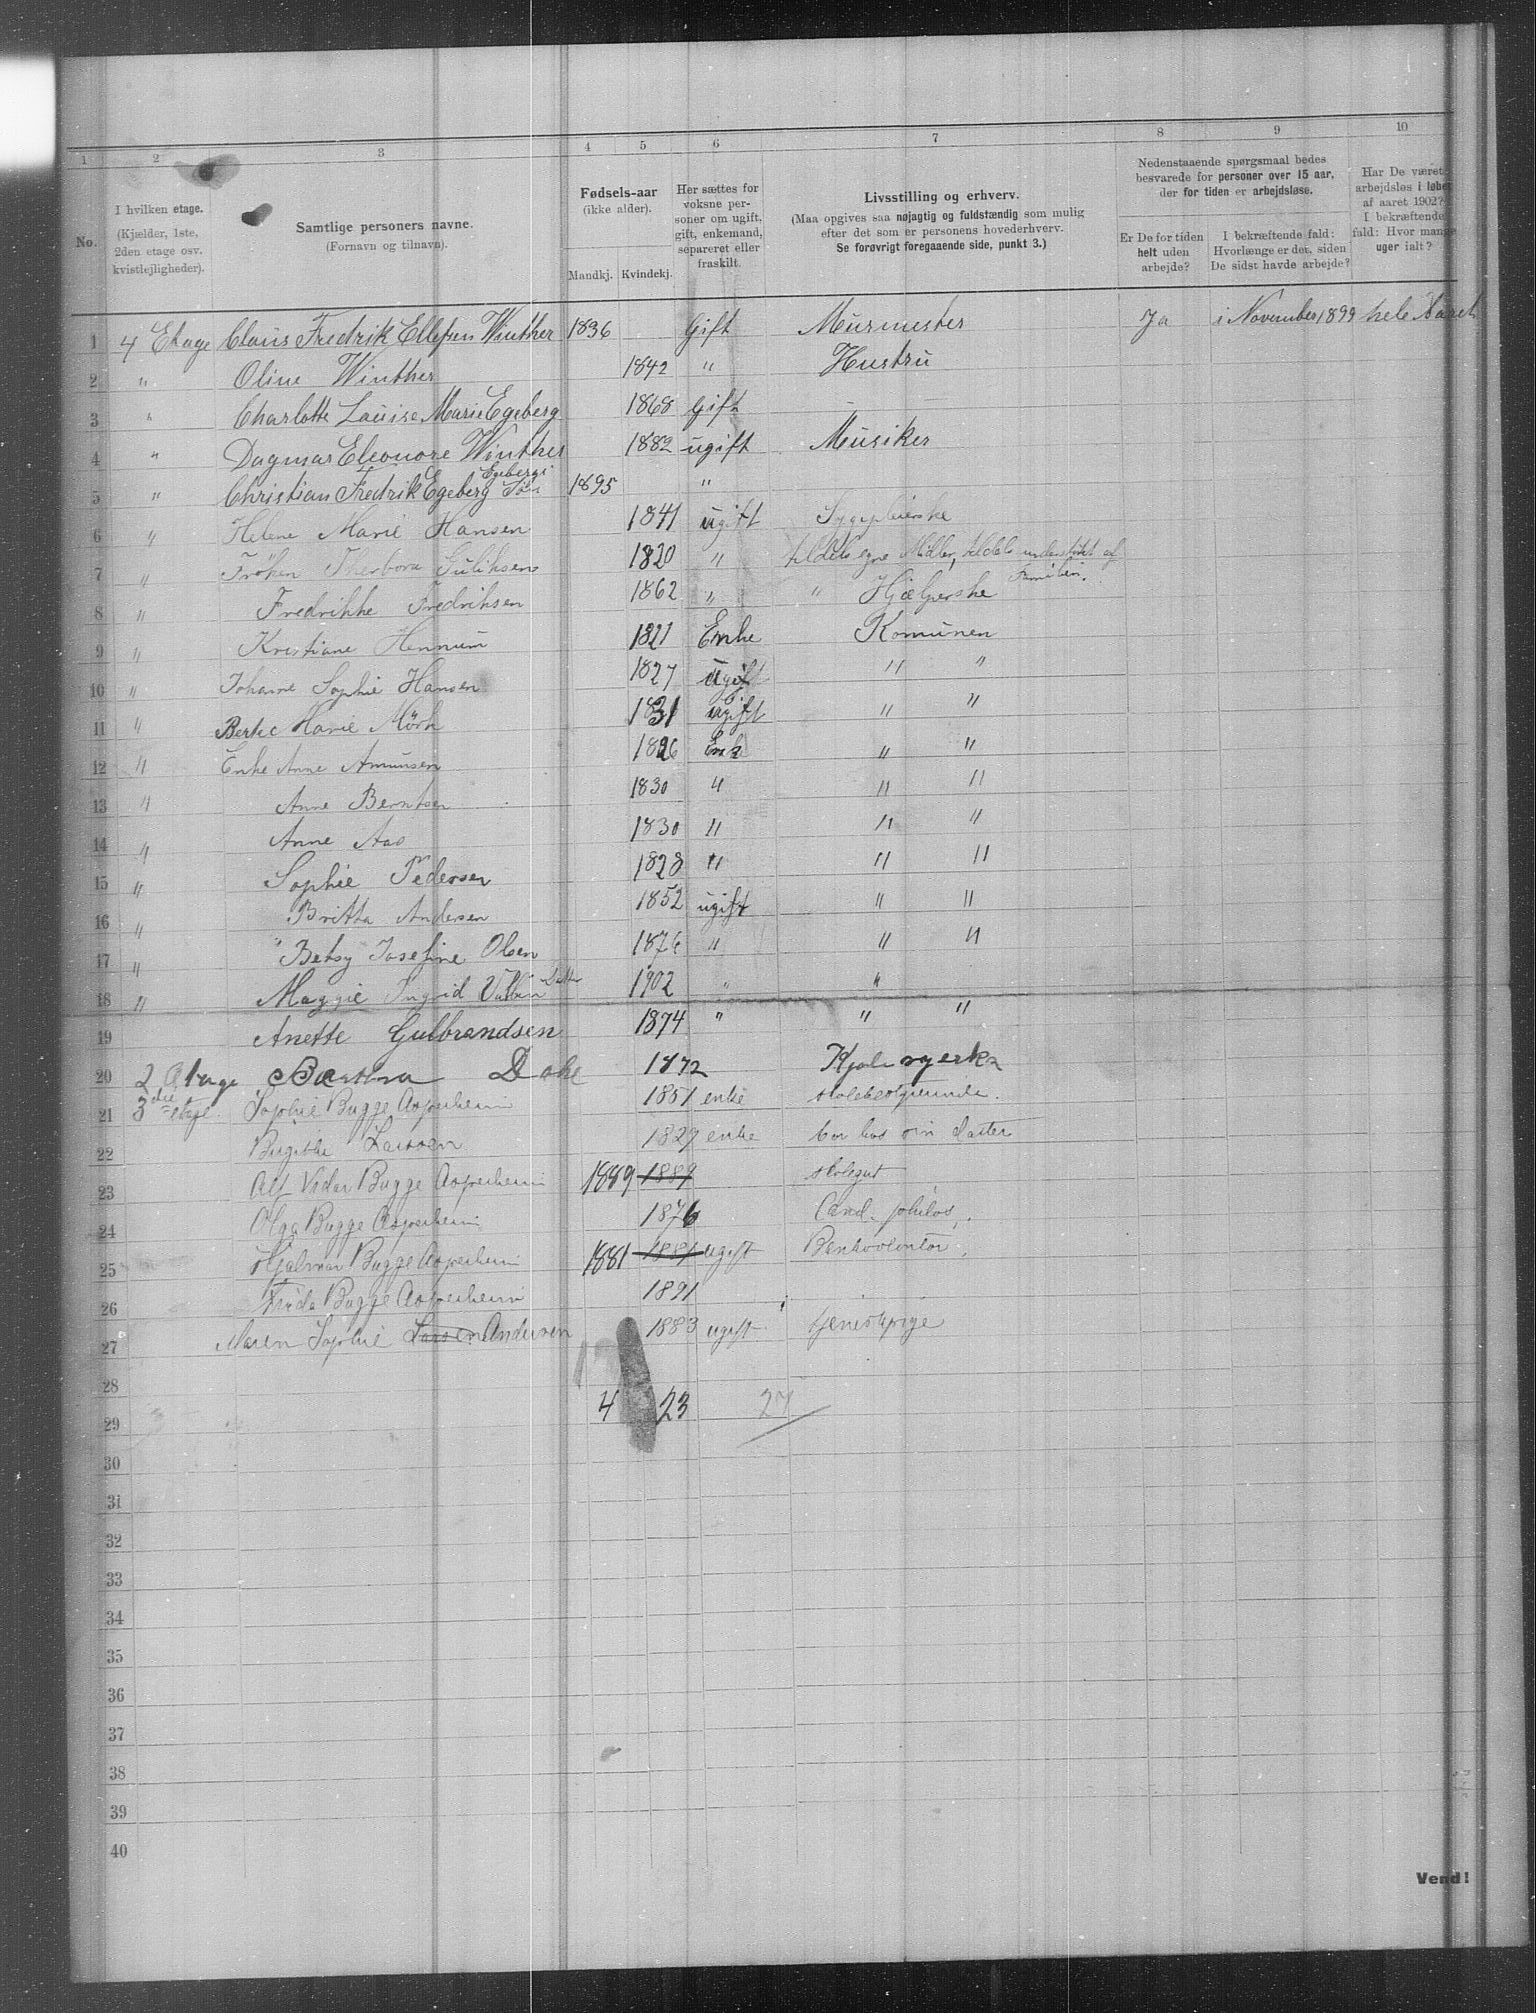 1 2 3 4 5 6 7 8 9 10
No.
I hvilken etage.
(Kjælder, 1ste,
2den etage osv.
kvistlejligheder).
Samtlige personers navne.
(Fornavn og tilnavn).
Fødsels-aar
(ikke alder).
Mandkj. Kvindekj.
Her sættes for
voksne per-
soner om ugift,
gift, enkemand,
separeret eller
fraskilt.
Livsstilling og erhverv.
(Maa opgives saa nøjagtig og fuldstændig som mulig
efter det som er personens hovederhverv.
Se forøvrigt foregaaende side, punkt 3.)
Nedenstaaende spørgsmaal bedes
besvarede for personer over 15 aar,
der for tiden er arbejdsløse.
Er De for tiden
helt uden
arbejde?
I bekræftende fald:
Hvorlænge er det, siden
De sidst havde arbejde?
Har De været
arbejdsløs i løbet
af aaret 1902?
I bekræftende
fald: Hvor mange
uger ialt?
1 4 Etage Claus Fredrik Ellefsen Winther 1836 Gift Murmester Ja i November 1899 hele Aaret
2 " Oline Winther 1842 " Hustru
3 " Charlotte Louise Marie Egeberg 1868 Gift
4 " Dagmar Eleonore Winther 1882 ugift Musiker
5 " Christian Fredrik Egeberg Egebergs Søn 1895 "
6 " Helene Marie Hansen 1841 ugift Sygepleierske
7 " Frøken Thorbora Suliksen 1820 " tildels egne Midler, tildels understøttet af Familien.
8 " Fredrikke Fredriksen 1862 " " Hjælperske
9 " Kristiane Hennum 1821 Enke Komunen
10 " Johanne Sophie Hansen 1827 ugift " "
11 " Marie Mörk 1831 ugift " "
12 " Enke Anne Amunsen 1826 Enke " "
13 " Anne Berntsen 1830 " " "
14 " Anne Aas 1830 " " "
15 " Sophie Pedersen 1828 " " "
16 " Britta Andersen 1852 ugift " "
17 " " Betsy Josefine Olsen 1876 " " "
18 " Maggie Ingrid Datter 1902 " "
19 Anette Gulbrandsen 1874 " " "
20 2 Etage 1872
21 3die etage Sophie Bugge Aspenheim 1851 enke skolebestyrerinde.
22 Birgitte Larsen 1829 enke bor hos sin datter
23 Alf Vidar Bugge Aspenheim 1889 1889 skolegut
24 Olga Bugge Aspenheim 1876 Cand. philos.
25 Hjalmar Bugge Aspenheim 1881 1881 ugift Bankvolontør
26 Frida Bugge Aspenheim 1891
27 Maren Sophie Larsen Andersen 1883 ugift tjenestepige
28
29 4 23 27
30
31
32
33
34
35
36
37
38
39
40
Vend!